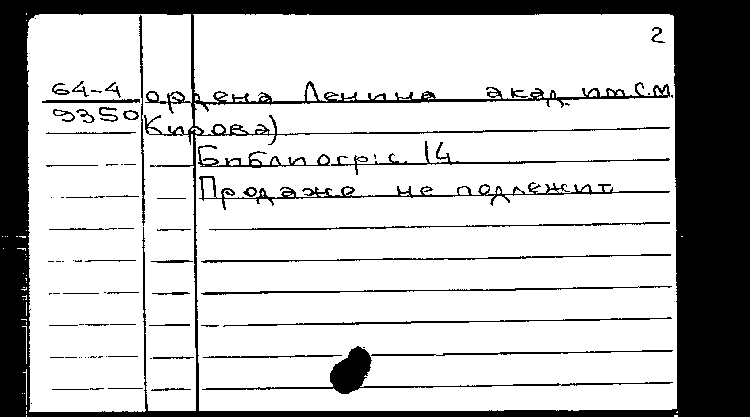 2
64-4 ордена Ленина акад. им. С.М.
9350 Кирова)
Библиогр: с. 14
Продаже не подлежит